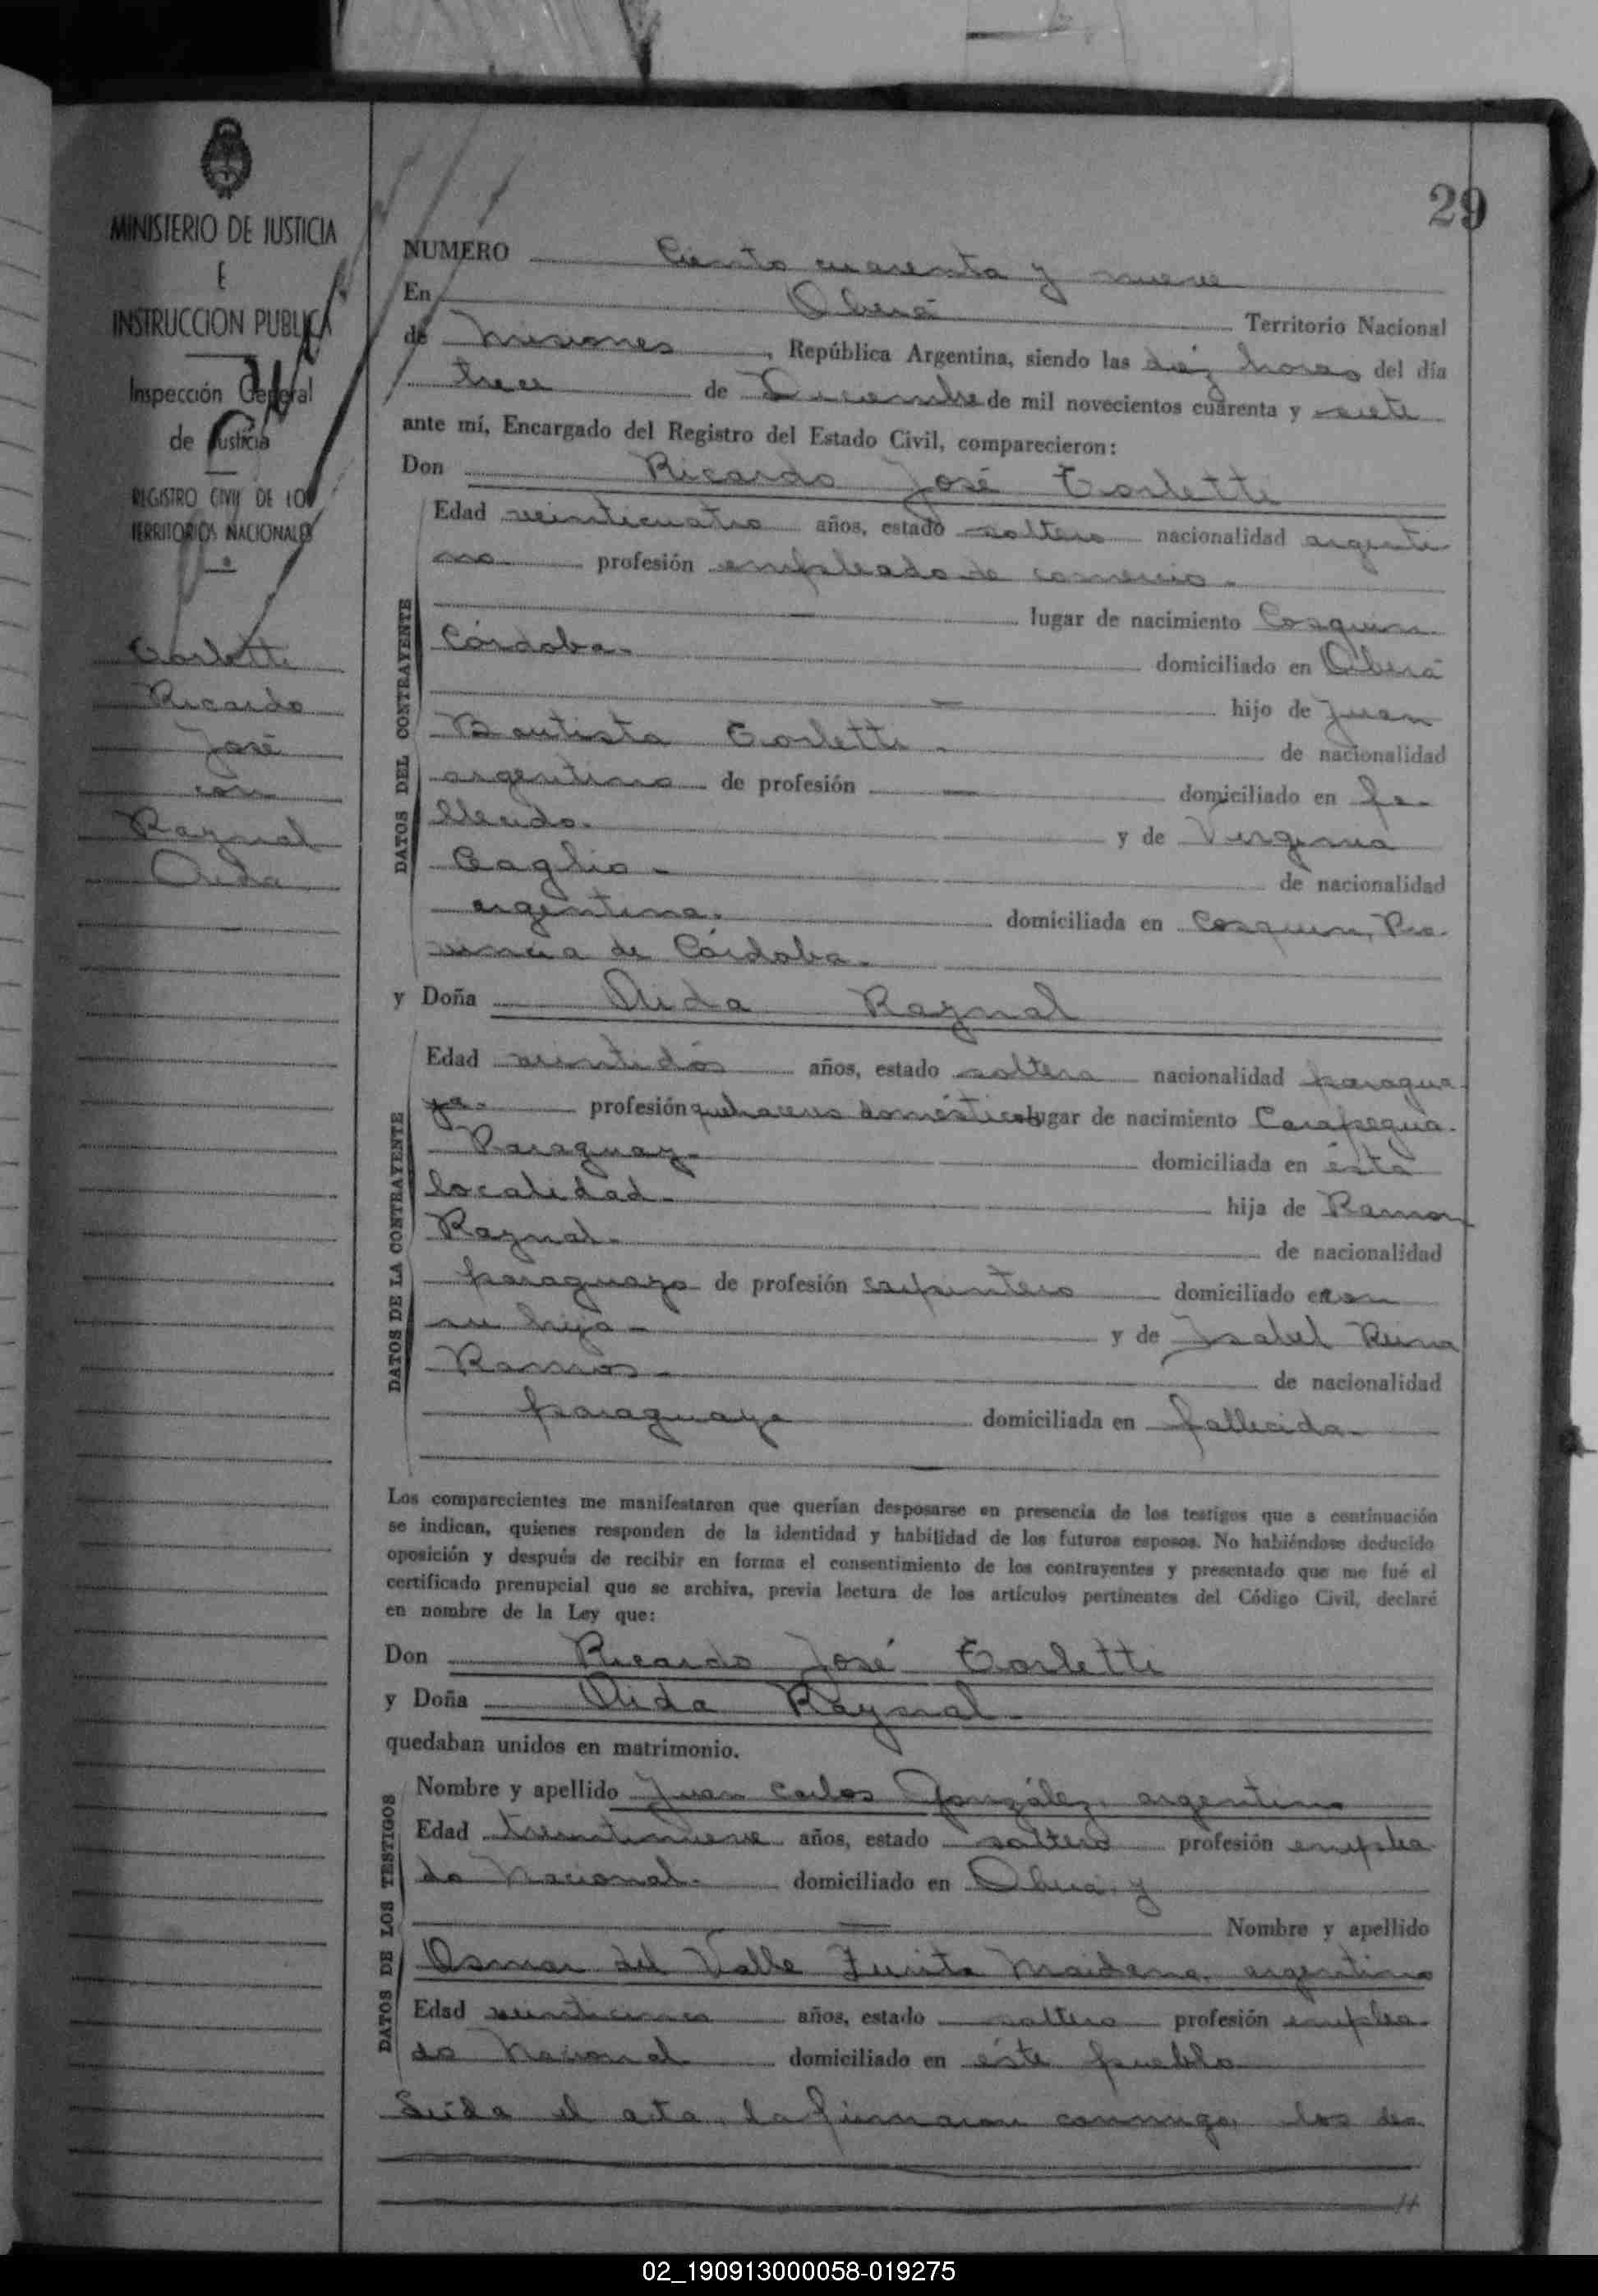 29
MINISTERIO DE JUSTICIA
E
INSTRUCCION PUBLICA
Inspección General
de Justicia
REGISTRO CIVIL DE LOS
TERRITORIOS NACIONALES
Torletti
Ricardo
José
con
Raynal
Aida
NUMERO Ciento cuarenta y nueve
En Oberá Territorio Nacional
de Misiones, República Argentina, siendo las diez horas del día
trece de Diciembre de mil novecientos cuarenta y siete
ante mí, Encargado del Registro del Estado Civil, comparecieron:
Don Ricardo José Torletti
DATOS DEL CONTRAYENTE
Edad veinticuatro años, estado soltero nacionalidad argenti
no profesión empleado de comercio.
lugar de nacimiento Cosquin
Córdoba. domiciliado en Oberá
hijo de Juan
Bautista Torletti. de nacionalidad
argentino de profesión — domiciliado en fa-
llecido. y de Virginia
Gaglio. de nacionalidad
argentina. domiciliada en Cosquin, Pro-
vincia de Córdoba.
y Doña Aida Raynal
DATOS DE LA CONTRAYENTE
Edad veintidós años, estado soltera nacionalidad paragua-
ya. profesión quehaceres domésticos lugar de nacimiento Carapegua.
Paraguay. domiciliada en ésta
localidad. hija de Ramon
Raynal. de nacionalidad
paraguayo de profesión carpintero domiciliado en con
su hija. y de Isabel Reina
Ramos. de nacionalidad
paraguaya domiciliada en fallecida.
Los comparecientes me manifestaron que querían desposarse en presencia de los testigos que a continuación
se indican, quienes responden de la identidad y habilidad de los futuros esposos. No habiéndose deducido
oposición y después de recibir en forma el consentimiento de los contrayentes y presentado que me fué el
certificado prenupcial que se archiva, previa lectura de los artículos pertinentes del Código Civil, declaré
en nombre de la Ley que:
Don Ricardo José Torletti
y Doña Aida Raynal.
quedaban unidos en matrimonio.
DATOS DE LOS TESTIGOS
Nombre y apellido Juan Carlos González, argentino
Edad treintinueve años, estado soltero profesión emplea-
do Nacional. domiciliado en Oberá, y
Nombre y apellido
Osmar del Valle Zurita Maidana, argentino
Edad veinticinco años, estado soltero profesión emplea-
do Nacional domiciliado en éste pueblo
Leída el acta, la firmaron conmigo, los des
02_190913000058-019275